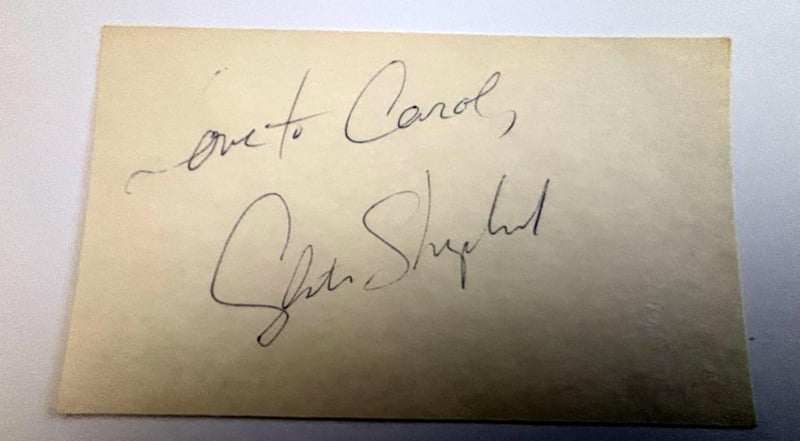 Love to Carol,
Cybill Shepherd